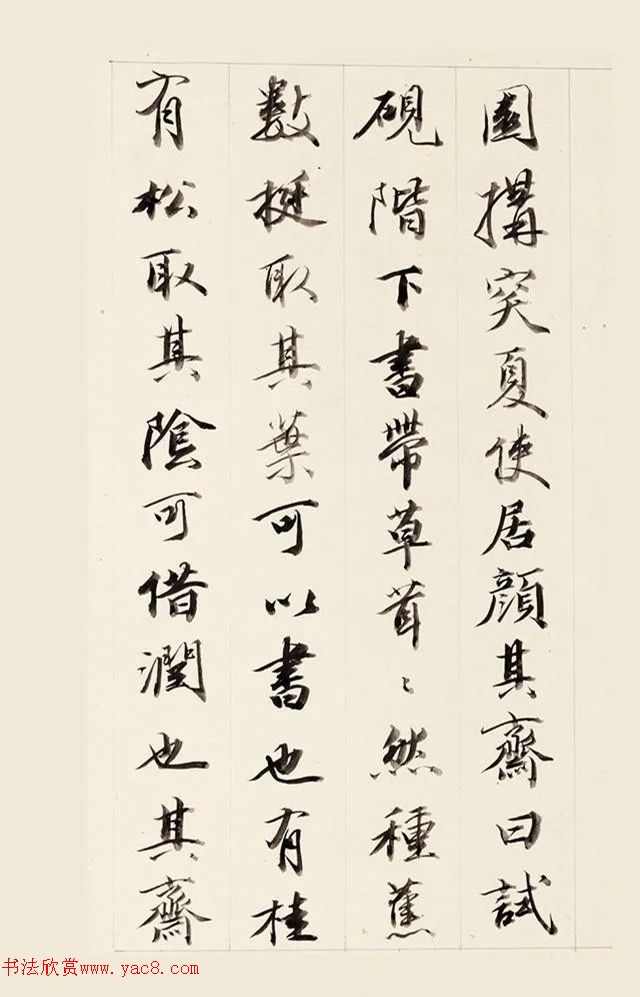 園搆突夏使居顏其齋曰試
硯階下書帶草茸〻然種蕉
數挺取其葉可以書也有桂
有松取其陰可借潤也其齋
书法欣赏www.yac8.com